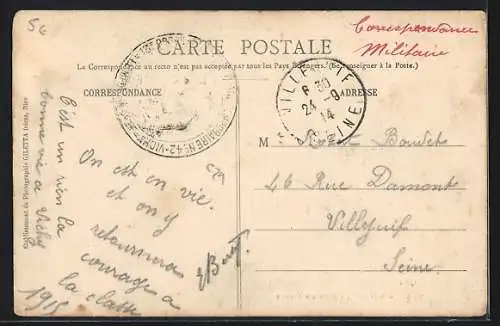 56
CARTE POSTALE
Correspondance
Militaire
La Correspondance au recto n'est pas acceptée par tous les Pays étrangers. (Se renseigner à la Poste.)
CORRESPONDANCE
ADRESSE
VILLEJUIF
6 30
24 - 9
14
SEINE
N° 42 - VICHY
Établissement de Photographie GILETTA frères, Nice
C'est un rien la
bonne vie a Vichy
1915
On est en vie.
et on y
retournera
courage a
la classe
M Boudet
46 Rue Damont
Villejuif
Seine